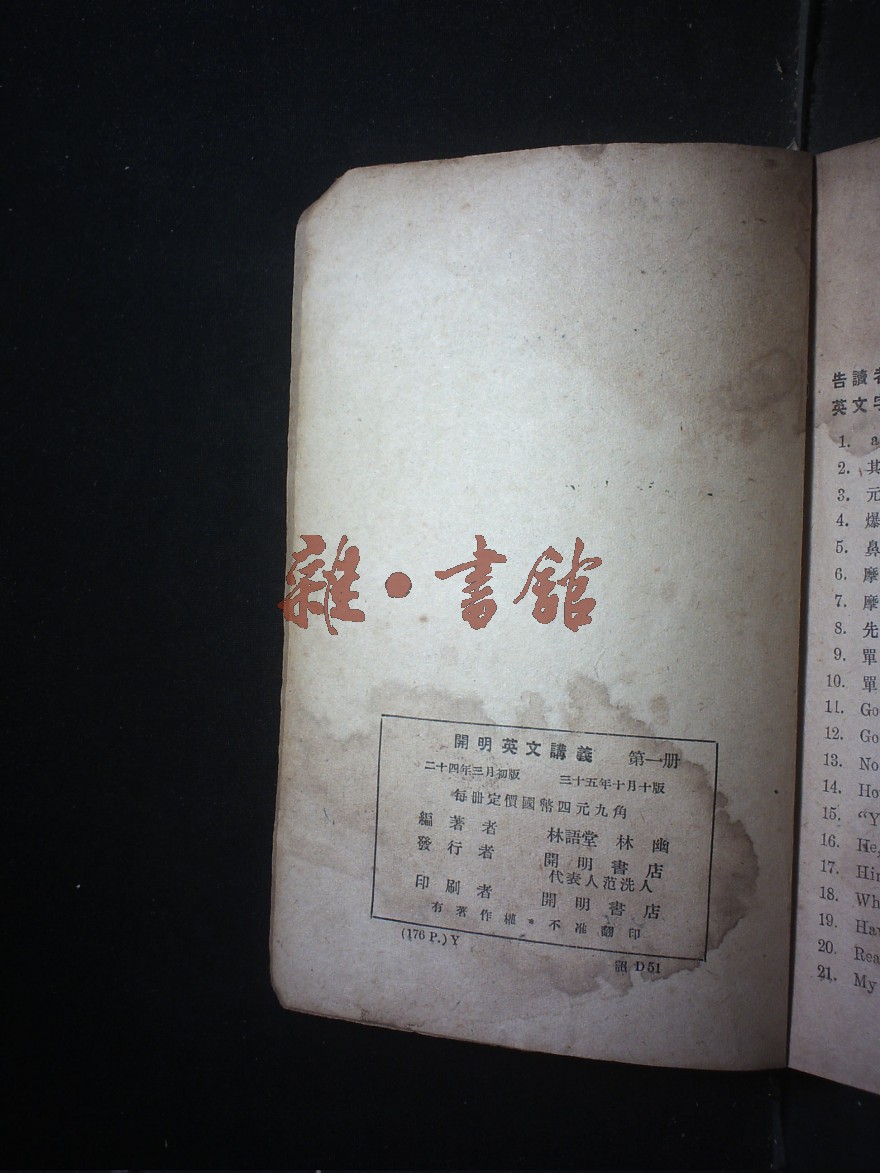 雜·書館
開明英文講義 第一册
二十四年三月初版 三十五年十月十版
每册定價國幣四元九角
編著者 林語堂 林幽
發行者 開明書店
代表人范洗人
印刷者 開明書店
有著作權·不准翻印
(176 P.) Y
D 51
告讀者
英文字
1. a
2. 其
3. 元
4. 爆
5. 鼻
6. 摩
7. 摩
8. 先
9. 單
10. 單
11. Go
12. Go
13. No
14. Ho
15. “Y
16. He,
17. Hi
18. Wh
19. Ha
20. Rea
21. My